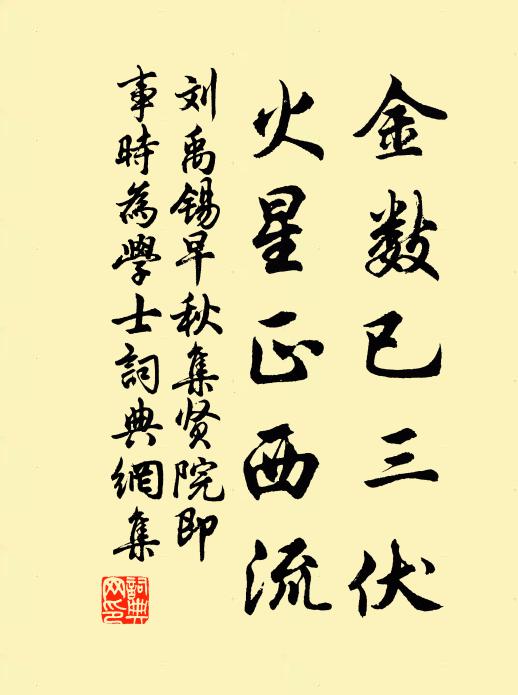 金数已三伏
火星正西流
刘禹锡早秋集贤院即
事時為學士詞典網集
詞典網印